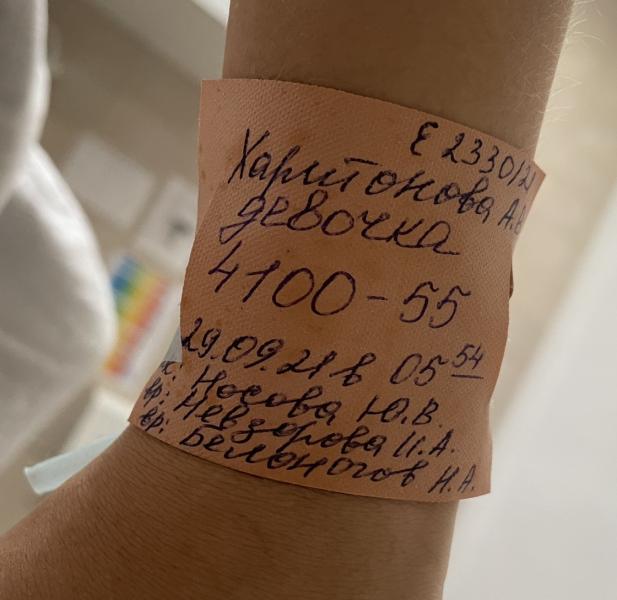 Е 2330/21
Харитонова А.В
девочка
4100-55
29.09.21 в 05 54
Носова Ю.В.
вр: Невзорова И.А.
вр: Белоногов Н.А.